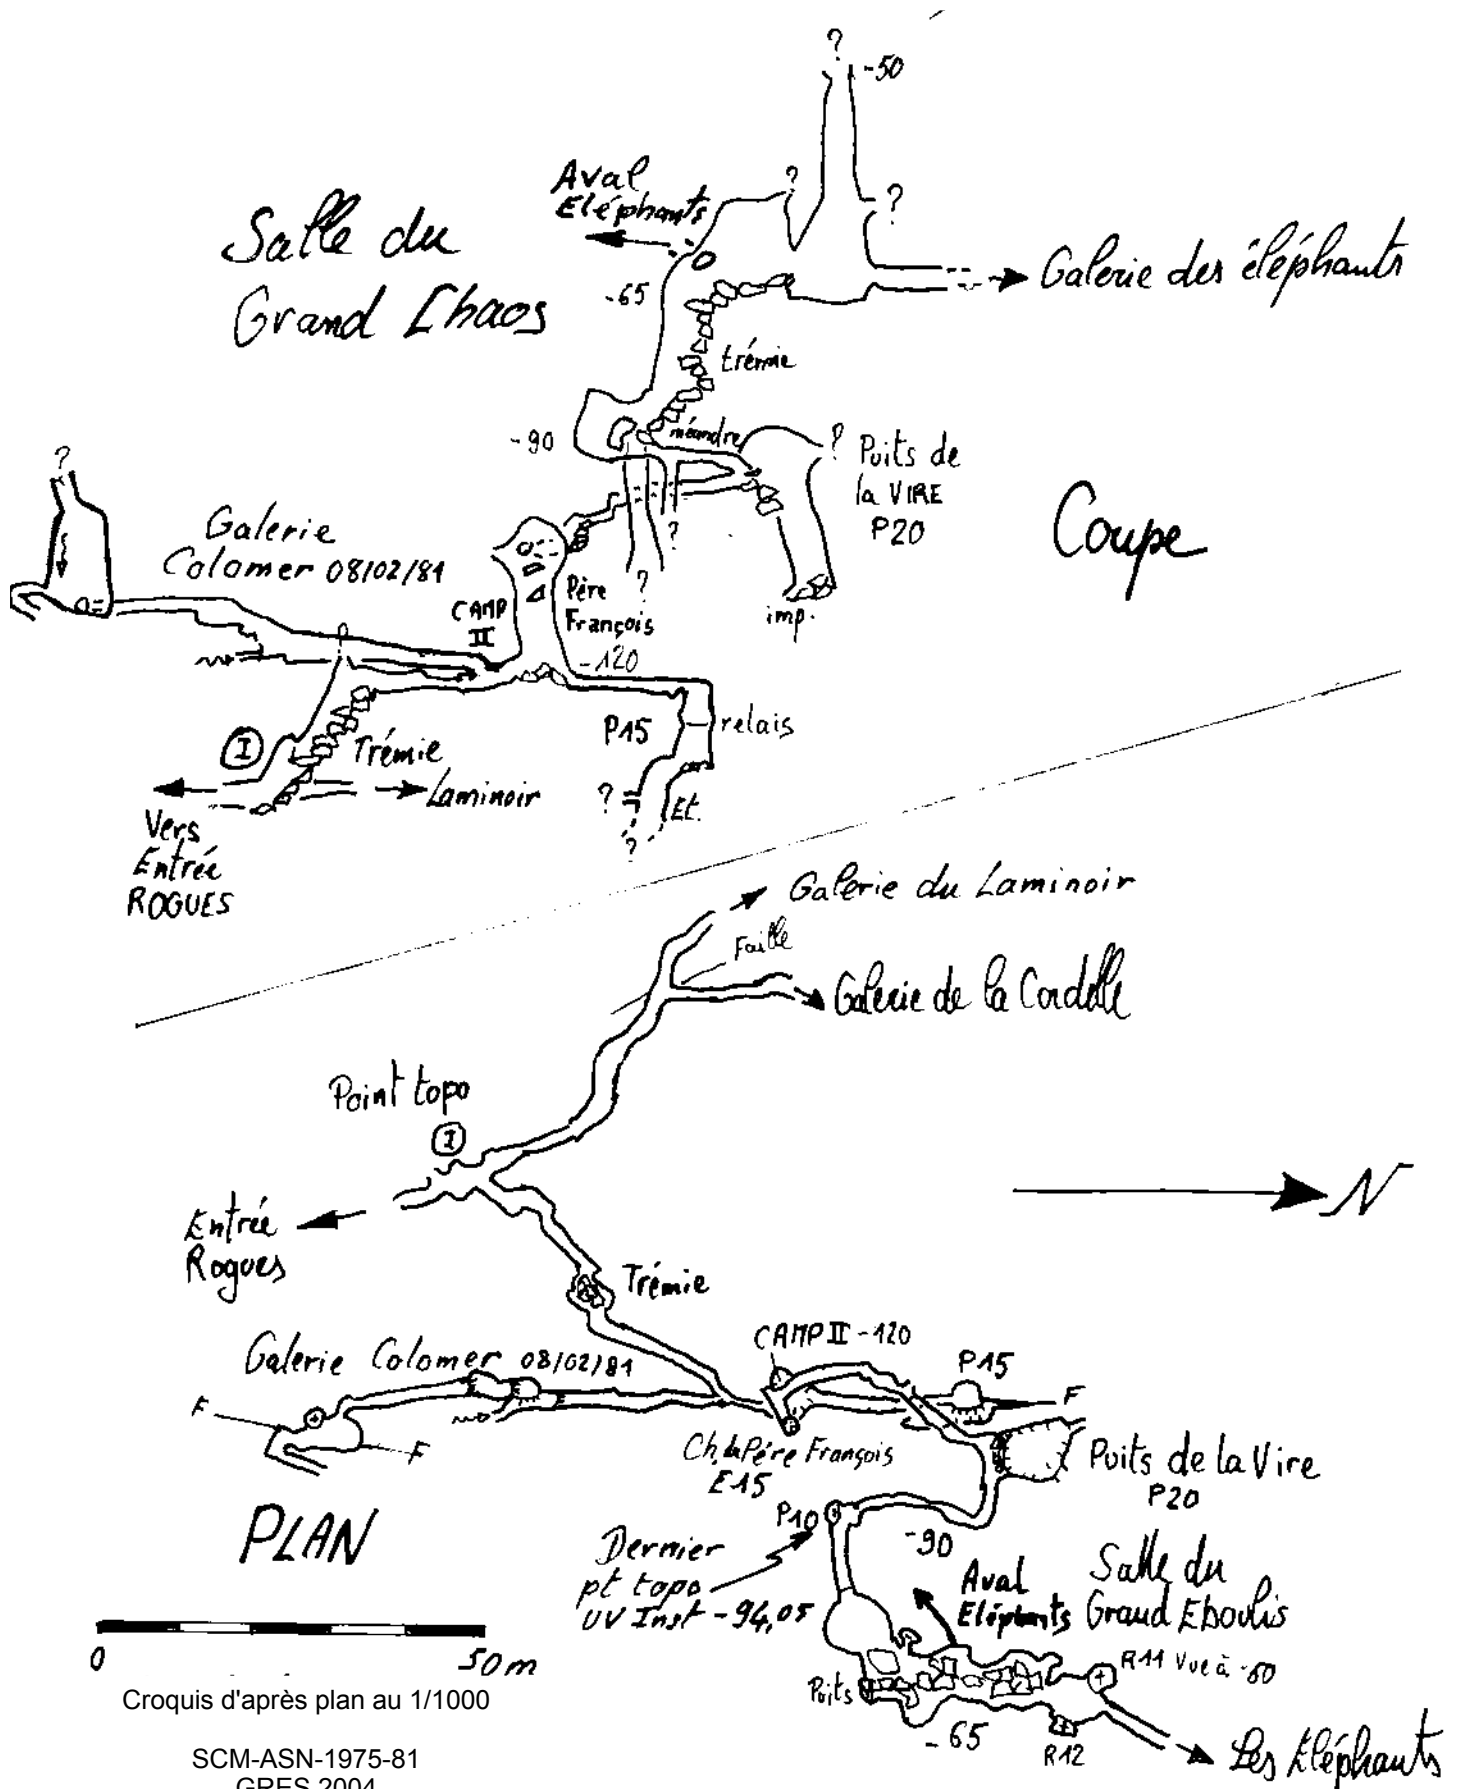 ?
-50
Aval
Eléphants
?
?
Salle du
Grand Chaos
-65
Galerie des éléphants
trémie
-90
méandre
?
Puits de
la VIRE
P20
?
Galerie
Colomer 08/02/81
CAMP
II
Père
François
?
?
imp.
Coupe
-120
P15
relais
I
Trémie
Laminoir
?
Et.
?
Vers
Entrée
ROGUES
Galerie du Laminoir
Faille
Galerie de la Cordelle
Point topo
I
N
Entrée
Rogues
Trémie
CAMP II -120
Galerie Colomer 08/02/81
P15
F
F
F
Ch. du Père François
E15
Puits de la Vire
P20
PLAN
P10
-90
Dernier
pt topo
UV Inst -94,05
Aval
Eléphants
Salle du
Grand Eboulis
R11 Vue à -50
Puits
-65
R12
Les Eléphants
0
50m
Croquis d'après plan au 1/1000
SCM-ASN-1975-81
GRES 2004